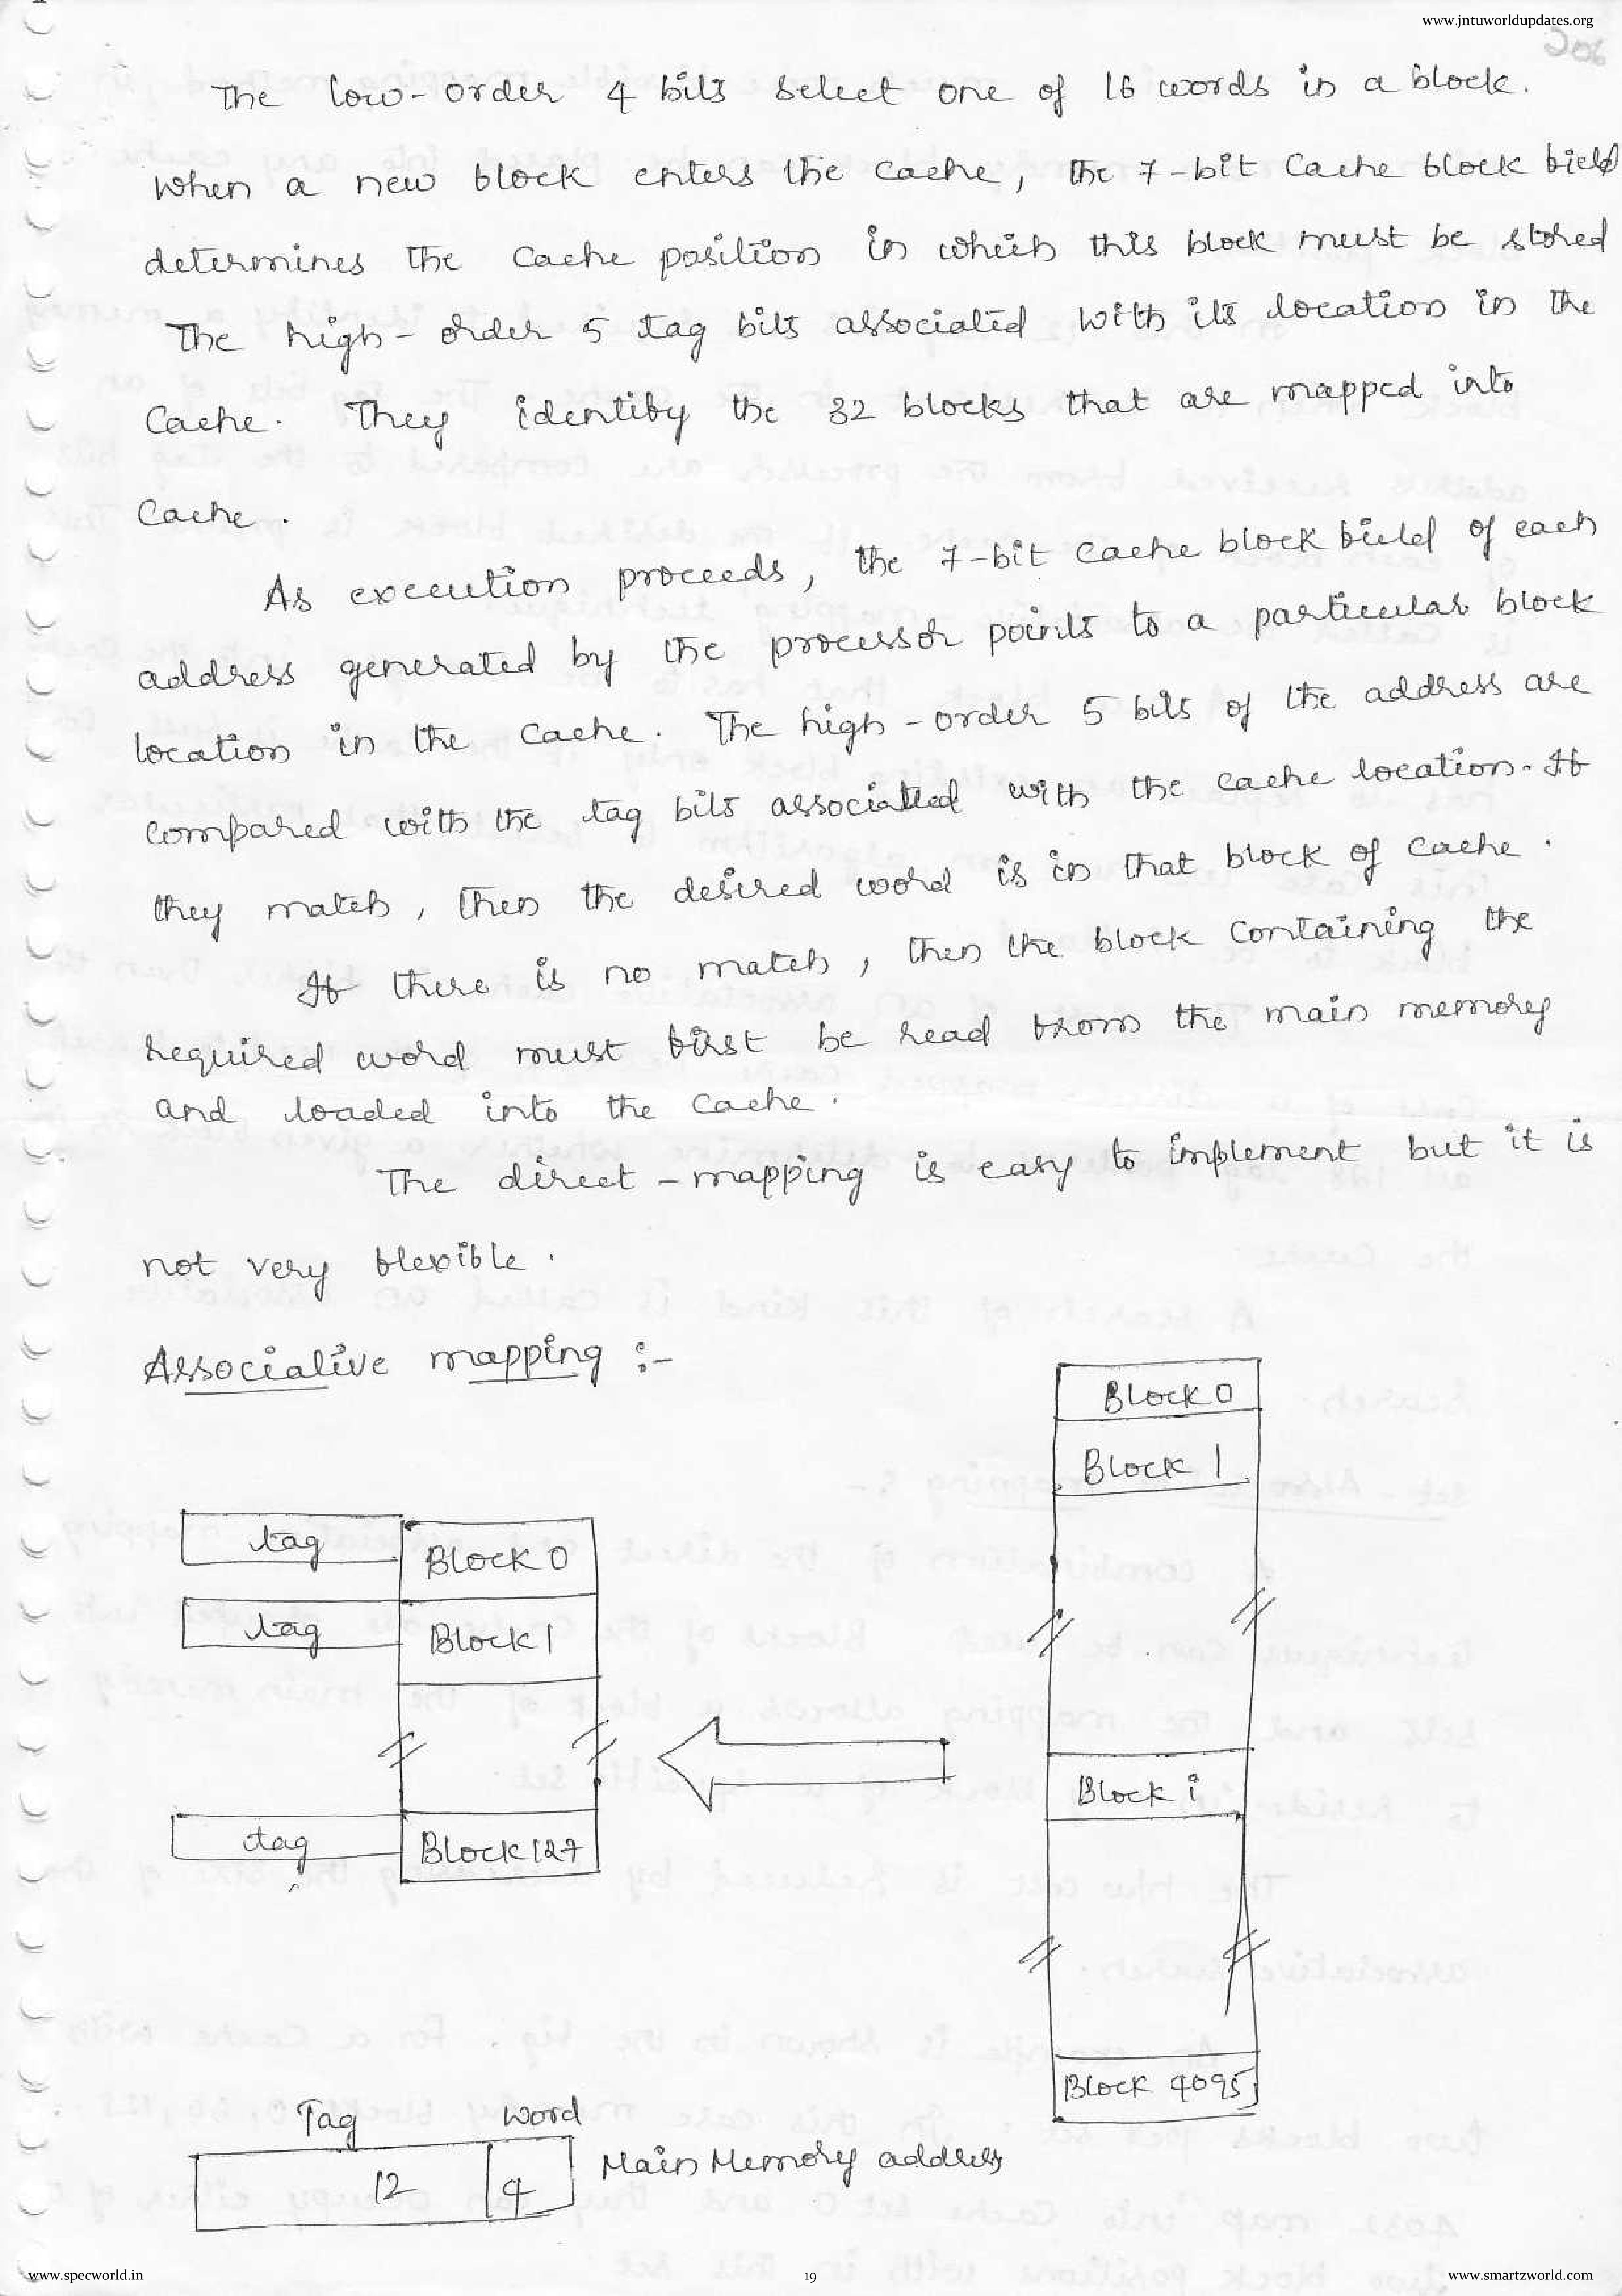 www.jntuworldupdates.org
206
The low-order 4 bits select one of 16 words in a block.
When a new block enters the cache, the 7-bit Cache block field
determines the Cache position in which this block must be stored
The high-order 5 tag bits associated with its location in the
Cache. They identify the 32 blocks that are mapped into
Cache.
As execution proceeds, the 7-bit cache block field of each
address generated by the processor points to a particular block
location in the cache. The high-order 5 bits of the address are
compared with the tag bits associated with the cache location. If
they match, then the desired word is in that block of cache.
If there is no match, then the block containing the
required word must first be read from the main memory
and loaded into the cache.
The direct-mapping is easy to implement but it is
not very flexible.
Associative mapping :-
Block 0
Block 1
tag Block 0
tag Block 1
Block i
tag Block 127
Block 4095
Tag word
12 4 Main Memory address
www.specworld.in 19 www.smartzworld.com